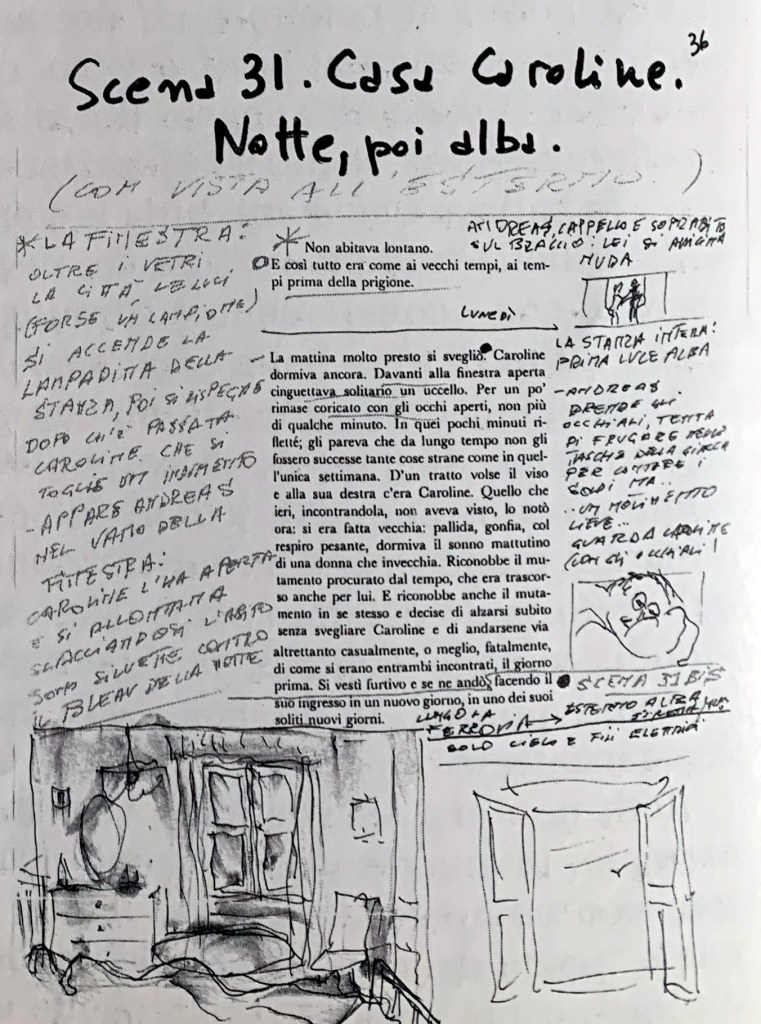 36
Scena 31. Casa Caroline.
Notte, poi alba.
(CON VISTA ALL'ESTERNO.)
* LA FINESTRA:
OLTRE I VETRI
LA CITTÀ, LE LUCI
(FORSE UN LAMPIONE)
SI ACCENDE LA
LAMPADINA DELLA
STANZA, POI SI RISPEGNE
DOPO CH'È PASSATA
CAROLINE CHE SI
TOGLIE UN INDUMENTO
- APPARE ANDREAS
NEL VANO DELLA
FINESTRA:
CAROLINE L'HA APERTA
E SI ALLONTANA
SLACCIANDOSI L'ABITO
SONO SILUETTE CONTRO
IL BLEAU DELLA NOTTE
* Non abitava lontano.
E così tutto era come ai vecchi tempi, ai tem-
pi prima della prigione.
LUNEDÌ
La mattina molto presto si svegliò. Caroline
dormiva ancora. Davanti alla finestra aperta
cinguettava solitario un uccello. Per un po'
rimase coricato con gli occhi aperti, non più
di qualche minuto. In quei pochi minuti ri-
fletté; gli pareva che da lungo tempo non gli
fossero successe tante cose strane come in quel-
l'unica settimana. D'un tratto volse il viso
e alla sua destra c'era Caroline. Quello che
ieri, incontrandola, non aveva visto, lo notò
ora: si era fatta vecchia: pallida, gonfia, col
respiro pesante, dormiva il sonno mattutino
di una donna che invecchia. Riconobbe il mu-
tamento procurato dal tempo, che era trascor-
so anche per lui. E riconobbe anche il muta-
mento in se stesso e decise di alzarsi subito
senza svegliare Caroline e di andarsene via
altrettanto casualmente, o meglio, fatalmente,
di come si erano entrambi incontrati, il giorno
prima. Si vestì furtivo e se ne andò, facendo il
suo ingresso in un nuovo giorno, in uno dei suoi
soliti nuovi giorni.
ANDREAS, CAPPELLO E SOPRABITO
SUL BRACCIO: LEI SI AVVICINA
NUDA
LA STANZA INTERA:
PRIMA LUCE ALBA
- ANDREAS
PRENDE GLI
OCCHIALI, TENTA
DI FRUGARE NELLE
TASCHE DELLA GIACCA
PER CONTARE I
SOLDI MA..
..UN MOVIMENTO
LIEVE...
GUARDA CAROLINE
(CON GLI OCCHIALI!
SCENA 31 BIS
ESTERNO ALBA
LUNGO LA
FERROVIA
SOLO CIELO E FILI ELETTRICI